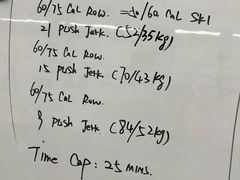 60/75 Cal Row. => 50/60 Cal SKI
21 Push Jerk. (52/35kg)
60/75 Cal Row.
15 push Jerk. (70/43kg)
60/75 Cal Row.
9 push Jerk (84/52kg)
Time Cap: 25 mins.